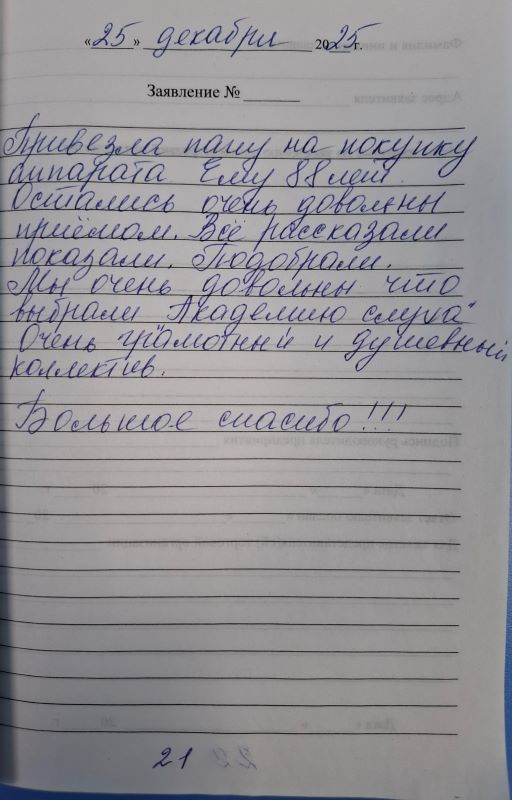 «25» декабря 2025г.
Заявление № ______
Привезла папу на покупку
аппарата Ему 88 лет.
Остались очень довольны
приёмом. Всё рассказали
показали. Подобрали.
Мы очень довольны что
выбрали "Академию слуха"
Очень грамотный и душевный
коллектив.
Большое спасибо!!!
21